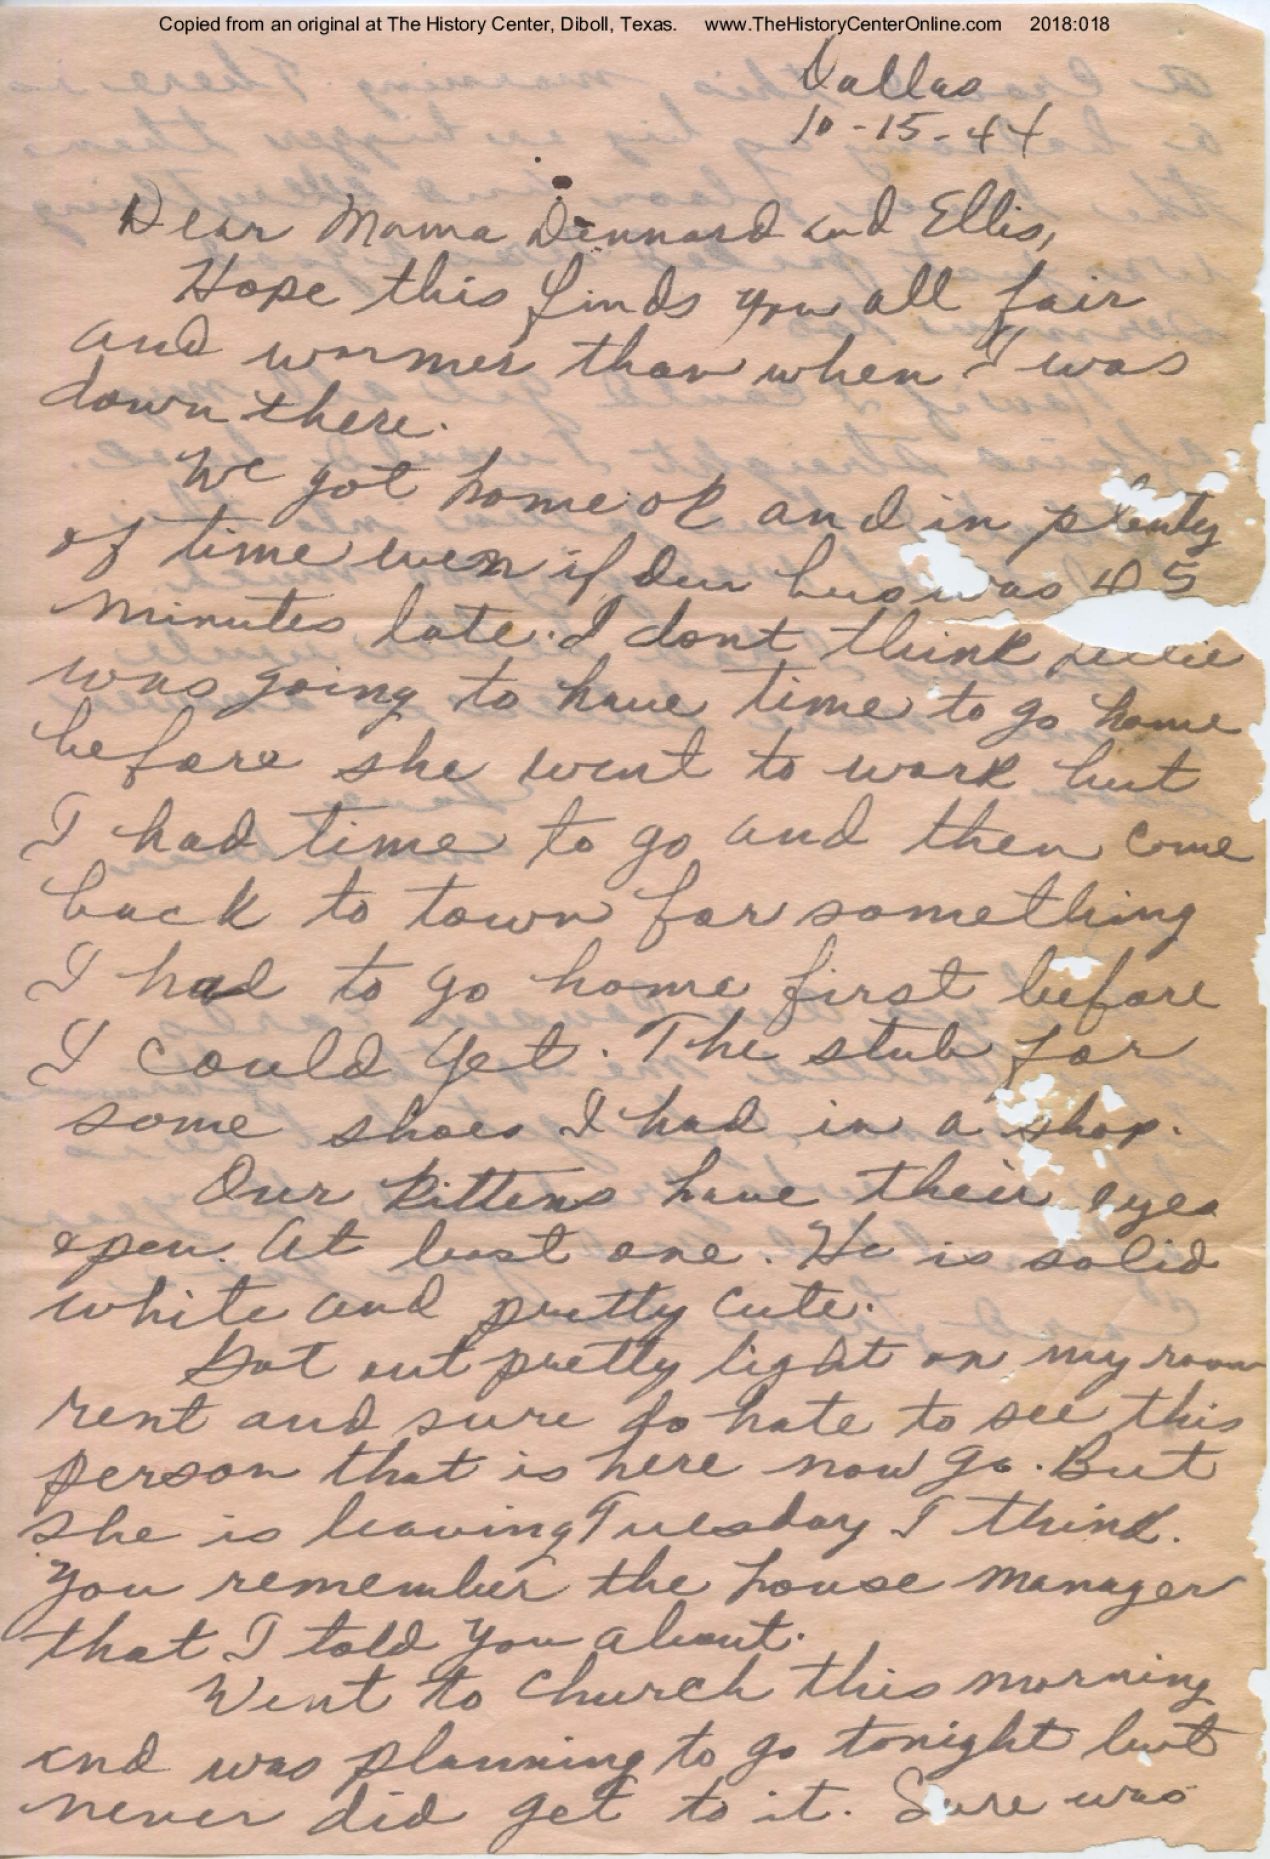 Copied from an original at The History Center, Diboll, Texas. www.TheHistoryCenterOnline.com 2018:018
Dallas
10-15-44
Dear Mama Dennard and Ellis,
Hope this finds you all fair
and warmer than when I was
down there.
We got home ok and in plenty
of time even if our bus was 45
minutes late. I dont think
was going to have time to go home
before she went to work but
I had time to go and then come
back to town for something
I had to go home first before
I could get. The stub for
some shoes I had in a shop.
Our kittens have their eyes
open. At least one. He is solid
white and pretty cute.
Got out pretty light on my room
rent and sure do hate to see this
person that is here now go. But
she is leaving Tuesday I think.
You remember the house manager
that I told you about.
Went to church this morning
and was planning to go tonight but
never did get to it. Sure was